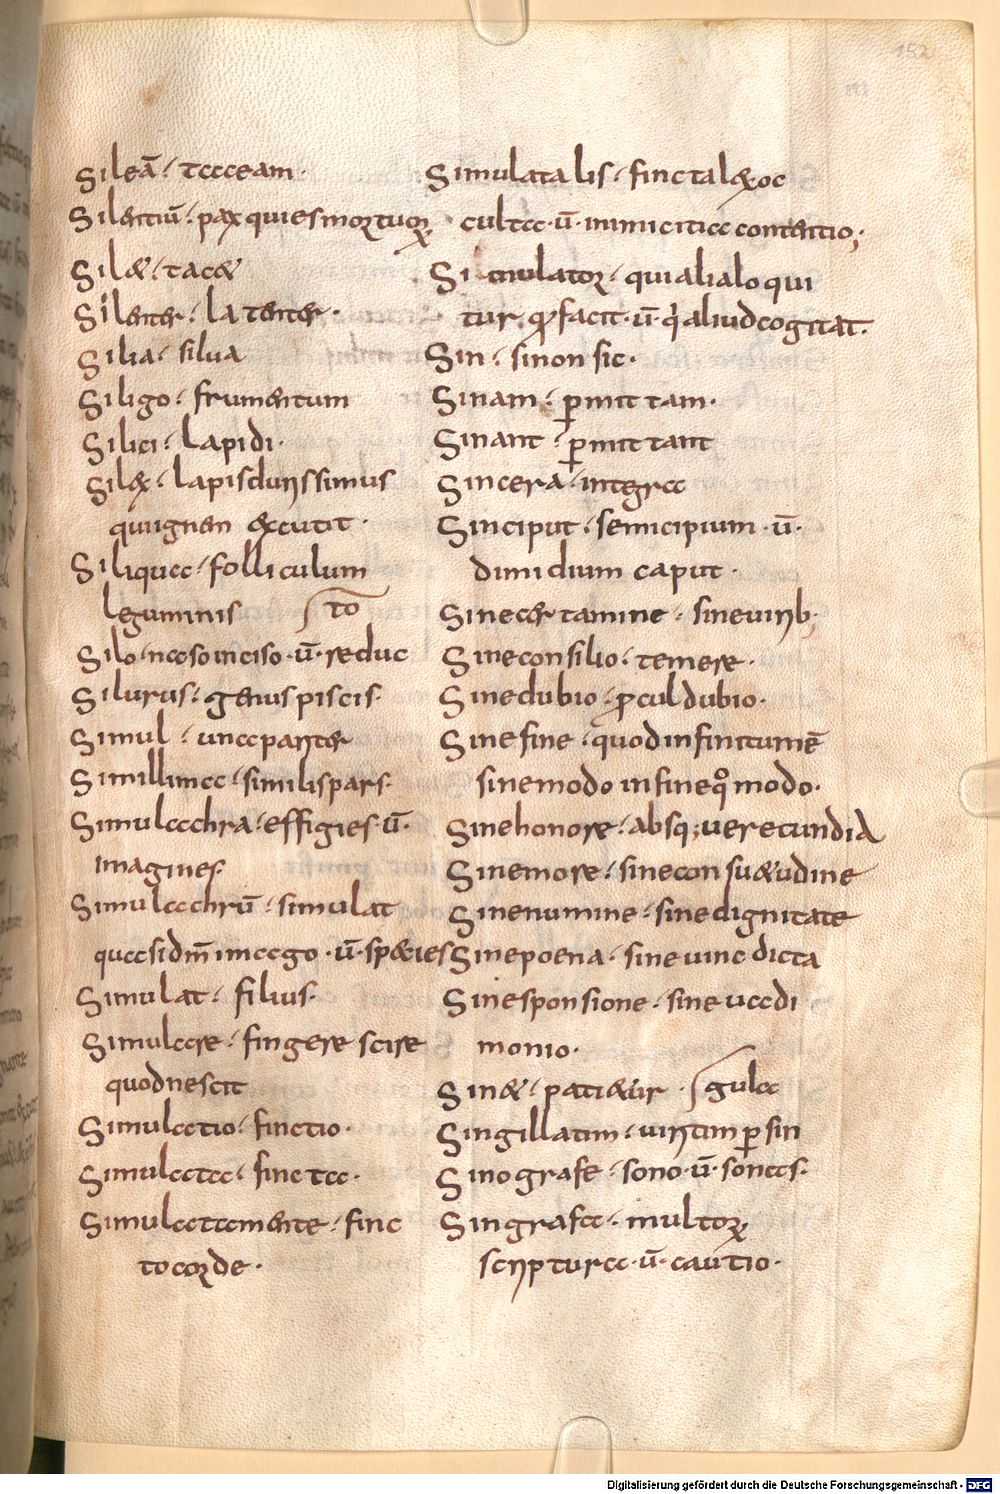 152
Sileā· taceam·
Silentiū· pax quies mortuoꝝ
Silet· tacet
Silenter· latenter·
Silia· silua
Siligo· frumentum
Silici· lapidi·
Silex· lapis durissimus
qui ignem excutit·
Siliquae· folliculum
leguminis
Silo· naso inciso· ū· reduc
tō
Silurus· genus piscis·
Simul· una pariter
Simillima· similis pars·
Simulachra· effigies· ū·
imagines·
Simulachrū· simulat
quasi dm̄ imago· ū· species
Simulat· filius·
Simulare· fingere scire
quod nescit
Simulatio· finctio·
Simulata· fincta·
Simulatamente· finc
to corde·
Simulatalis· finctal& oc
culta· ū· inimicitia contentio;
Simulator· qui alia loqui
tur, qđ facit· ū· q aliud cogitat·
Sin· si non sic·
Sinam· ꝑmittam·
Sinant· ꝑmittant
Sincera· integra
Sinciput· semicipium· ū·
dimidium caput·
Sine certamine· sine uirib;
Sine consilio· temere·
Sine dubio· ꝓcul dubio·
Sine fine· quod infinitum ē
sine modo in fine qͦ modo·
Sine honore· absq; uerecundia
Sine more· sine consu&udine
Sine numine· sine dignitate
Sine poena· sine uindicta
Sine sponsione· sine uadi
monio·
Sin&· pati&ur·
gula
Singillatim· uiritim ꝑ sin
Sinografe· sono· ū· sonas·
Singrafa· multoꝝ
scriptura· ū· cautio·
Digitalisierung gefördert durch die Deutsche Forschungsgemeinschaft - DFG